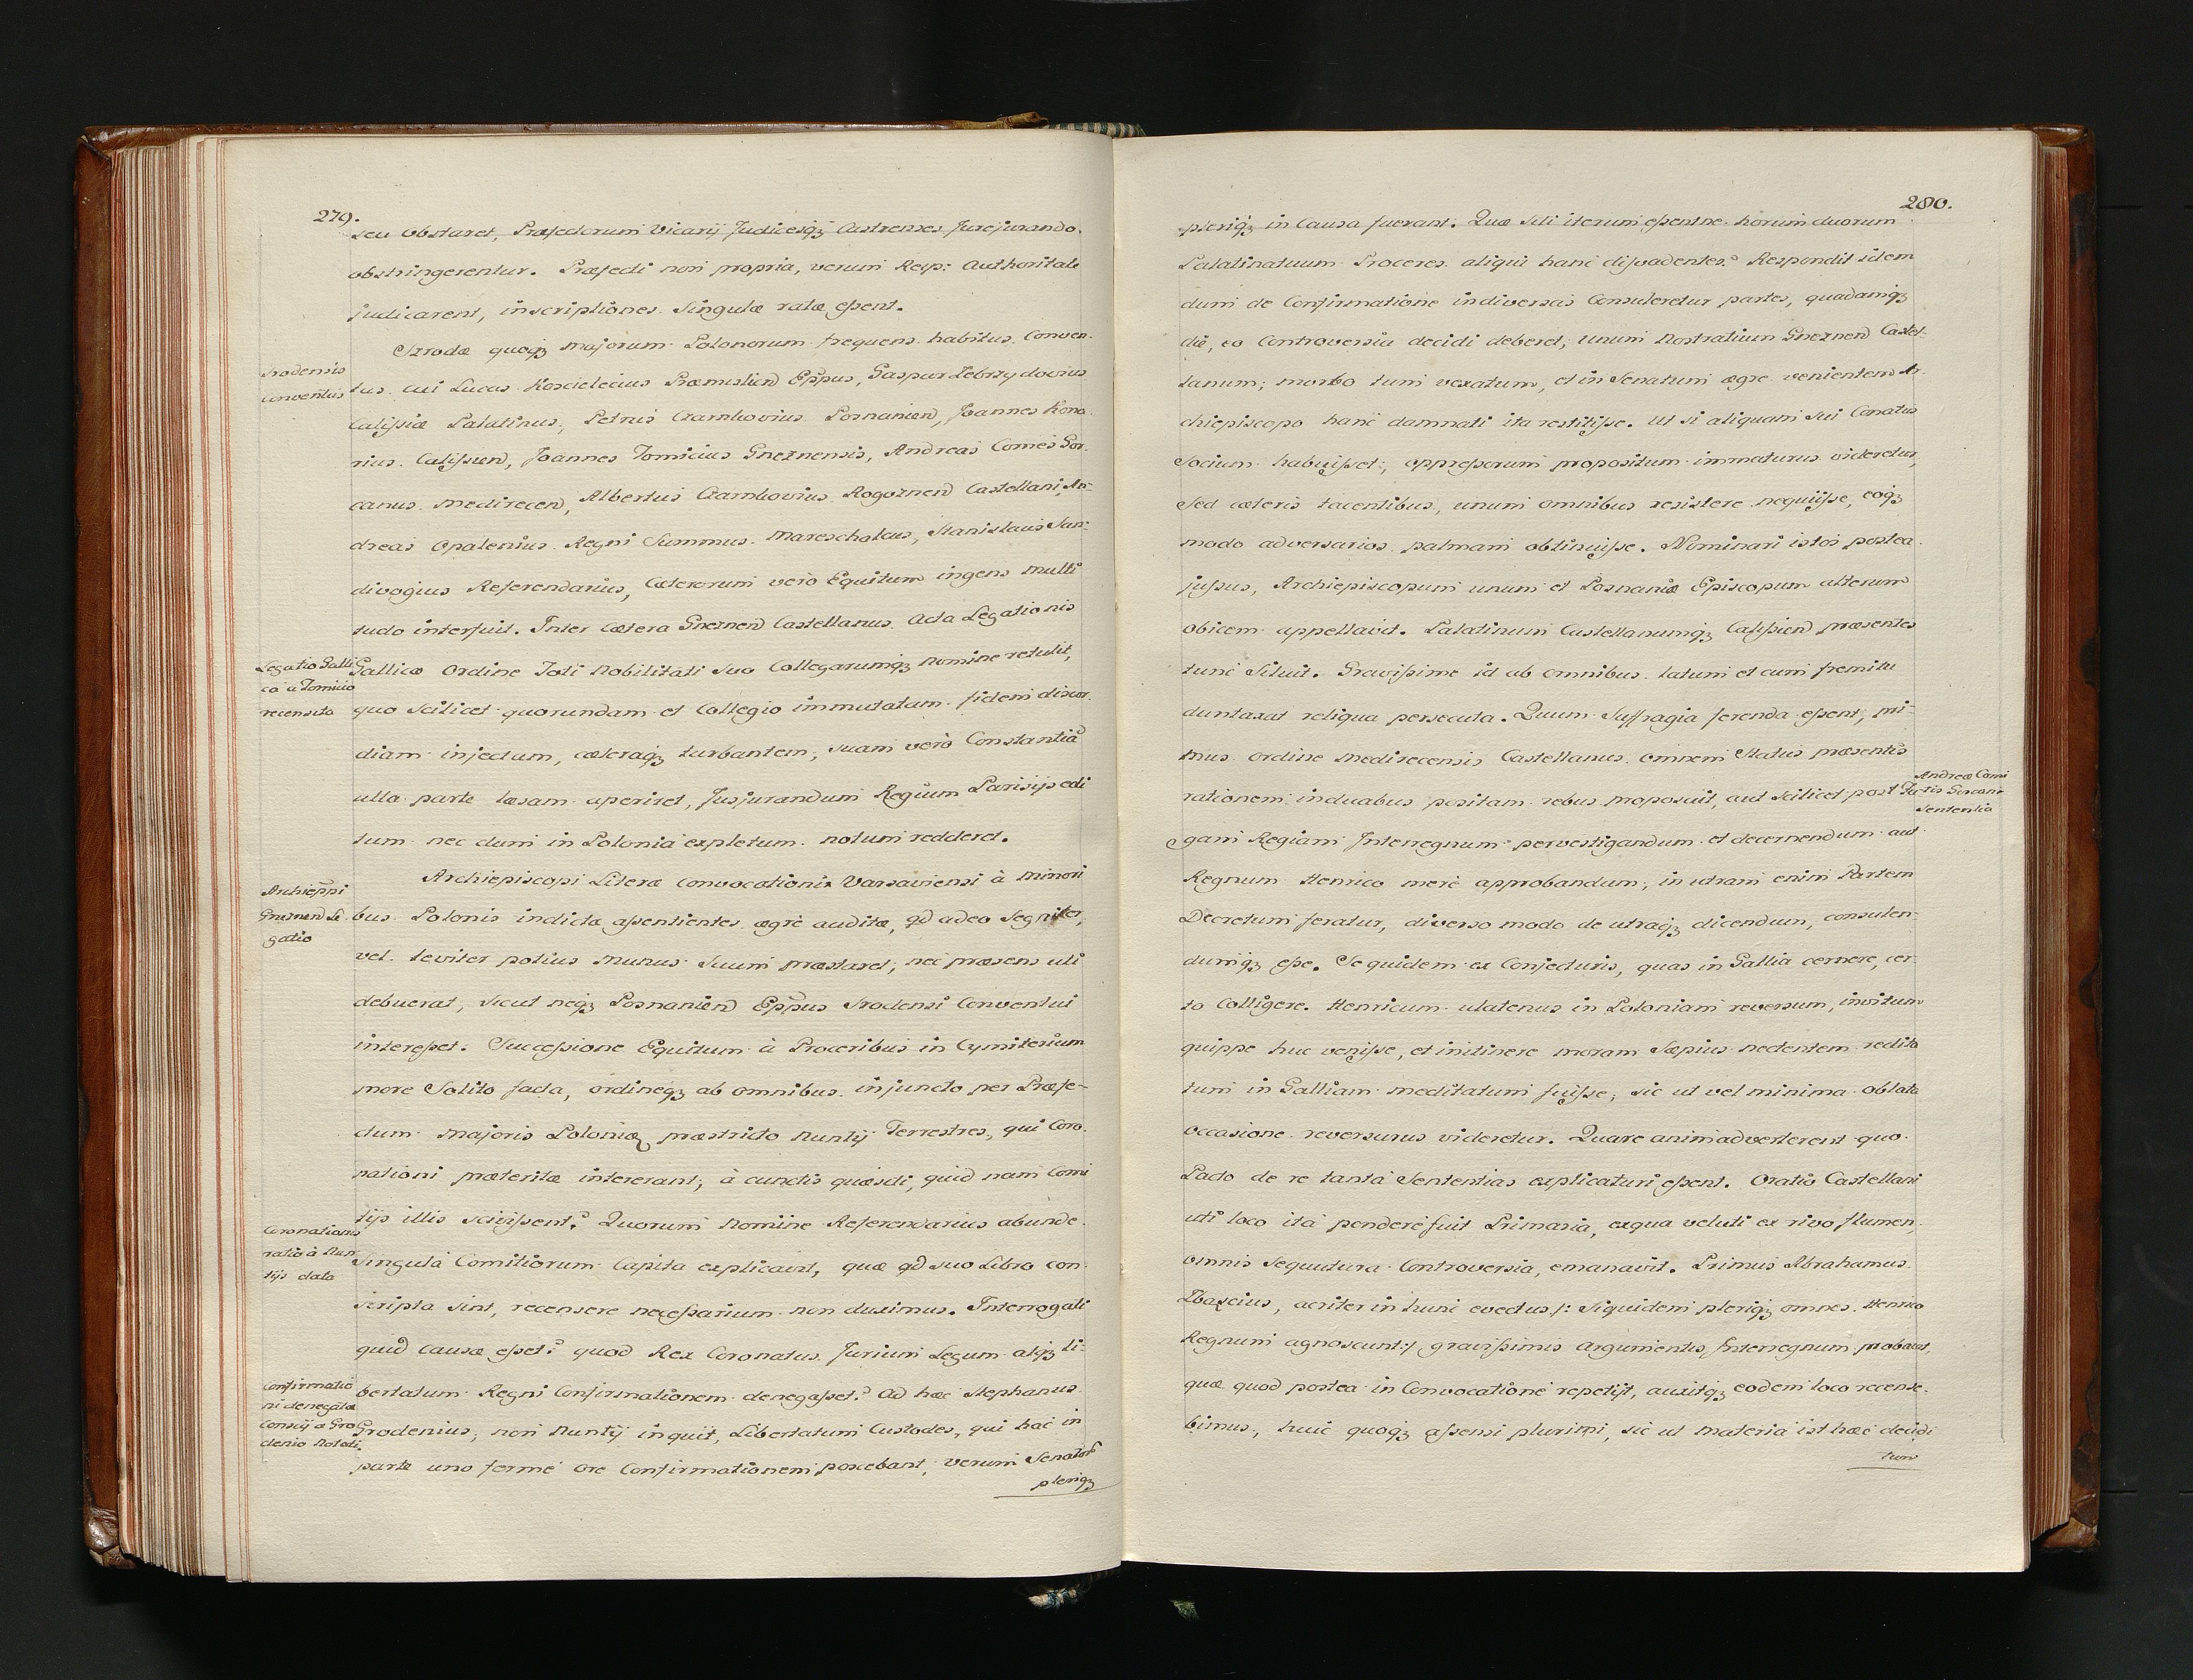 279.
seu obstaret, Præfectorum Vicarij Judicesqȝ Castrenses Jurejurando.
obstringerentur. Præfecti non propria, verum Reip: Authoritate
judicarent, inscriptiones Singulæ ratæ essent.
Srzodæ quoqȝ Majorum Polonorum frequens habitus Conven-
Srodensis
conventus
tus, cui Lucas Koscielecius Præmislien Eppus, Gaspar Zebrzydovius
Calissiæ Palatinus, Petrus Czarnkovius Posnanien, Joannes Kona-
rius Calissien, Joannes Tomicius Gneznensis, Andreas Comes Gor-
canus Medirecen, Albertus Czarnkovius Rogoznen Castellani, An-
dreas Opalenius Regni Summus Mareschalcus, Stanislaus San-
divogius Referendarius, Cæterorum vero Equitum ingens multi
tudo interfuit. Inter Cætera Gneznen Castellanus Acta Legationis
Legatio Galli
ca a Tomicio
recensita
Gallicæ Ordine Toti Nobilitati suo Collegarumqȝ nomine retulit,
quo scilicet quorundam et Collegio immutatam fidem discor-
diam injectam, cæteraqȝ turbantem, suam verò Constantiā
ulla parte læsam aperiret, Jusjurandum Regium Parisijs edi
tum nec dum in Polonia expletum notum redderet.
Archiepiscopi Literæ Convocationis Varsaviensi à minori
Archieppi
Gneznen Le-
gatio
bus Polonis indicta assentientes ægrè auditæ, qd adeo segniter,
vel leviter potius munus suum præstaret, nec præsens uti
debuerat, sicut neqȝ Posnanien Eppus Srodensi Conventui
interesset. Successione Equitum à Proceribus in Cymiterium
more Solito facta, ordineqȝ ab omnibus injuncto per Præfe-
ctum Majoris Poloniæ præstricto Nuntij Terrestres, qui Coro-
nationi præteritæ intererant, à cunctis quæsiti, quid nam Comi
tijs illis scivissent? Quorum Nomine Referendarius abunde
Coronationis
ratio à Nun
tijs data
Singula Comitiorum Capita explicavit, quæ qd suo Libro con-
scripta sint, recensere necessarium non duximus. Interrogati
quid causæ esset? quod Rex Coronatus Jurium Legum atqȝ li-
Confirmatio
ni denegatæ
conscij a Gro
denio Notati.
bertatum Regni Confirmationem denegasset? Ad hæc Stephanus
Grodenius, non Nuntij inquit, Libertatum Custodes, qui hac in
parte uno fermè ore Confirmationem poscebant, verum Senator
pleriqȝ
280.
pleriqȝ in Causa fuerant. Quæ siti iterum essentne horum duorum
Palatinatuum Proceres aliqui hanc dissuadentes? Respondit idem
dum de Confirmatione in diversas Consuleretur partes, quadamqȝ
die, ea Controversia decidi deberet, unum Nostratium Gneznen Castel-
lanum, morbo tum vexatum, et in Senatum ægre venientem Ar-
chiepiscopo hanc damnati ita restitisse. Ut si aliquam sui Conatus
Socium habuisset, oppressorum propositum immaturus videretur,
Sed cæteris tacentibus, unum omnibus resistere nequiisse, eoqȝ
modo adversarios palmam obtinuisse. Nominari istos postea
jussus, Archiepiscopum unum et Posnaniæ Episcopum alterum
obicem appellavit. Palatinum Castellanumqȝ Calissien præsentes
tunc Siluit. Gravissime id ab omnibus latum et cum fremitu
duntaxat reliqua persecuta. Quum Suffragia ferenda essent, pri-
mus ordine Medirecensis Castellanus omnem Status præsentis
Andreæ Comi
tis Gorcani
Sententia
rationem in duabus positam rebus proposuit, aut scilicet post Fu-
gam Regiam Interregnum pervestigandum et decernendum aut
Regnum Henrico merè approbandum, in utram enim Partem
Decretum feratur, diverso modo de utraqȝ dicendum, consulen-
dumqȝ esse. Se quidem ex Conjecturis, quas in Gallia cernere, cer-
to Colligere. Henricum ulatenus in Poloniam reversum, invitum
quippe huc venisse, et in itinere moram Sæpius nectentem redita
tum in Galliam meditatum fuisse, sic ut vel minima oblata
occasione reversurus videretur. Quare animadverterent quo
Pacto de re tantà Sententias explicaturi essent. Oratio Castellani
uti loco ità pondere fuit Primaria, ex qua veluti ex rivo flumen,
omnis Sequutura Controversia, emanavit. Primus Abrahamus
Zbascius, acriter in hunc evectus /: Siquidem pleriqȝ omnes Henrico
Regnum agnoscunt :/ gravissimis argumentis Interregnum probavit,
quæ quod postea in Convocatione repetijt, auxitqȝ eodem loco recense-
bimus, huic quoqȝ assensi plurimi, sic ut materia isthæc decidi
tum